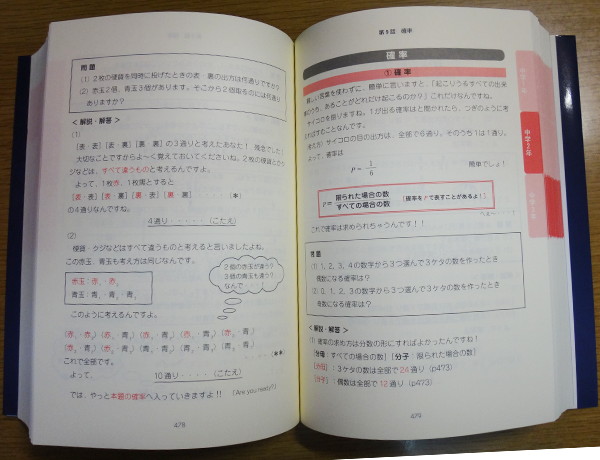 問題
(1) 2枚の硬貨を同時に投げたときの表・裏の出方は何通りですか
(2) 赤玉2個、青玉3個があります。そこから2個取るのには何通り
ありますか?
< 解説・解答 >
(1)
[表・表] [表・裏] [裏・裏] の3通りと考えたあなた! 残念でした!
大切なことですからよ〜く覚えておいてくださいね。2枚の硬貨とか
クジなどは、すべて違うものと考えるんですよ。
よって、1枚赤、1枚黒とすると
[表・表] [表・裏] [裏・表] [裏・裏] ・・・・・(*)
の4通りなんですね。
4通り・・・・・(こたえ)
(2)
硬貨・クジなどはすべて違うものと考えると言いましたよね。
この赤玉、青玉も考え方は同じなんです。
赤玉:赤₁・赤₂
青玉:青₁・青₂・青₃
2個の赤玉が違う?
3個の青玉も違う?
なんで・・・!
このように考えるんですよ。
(赤₁・赤₂) (赤₁・青₁) (赤₁・青₂) (赤₁・青₃) (赤₂・青₁)
(赤₂・青₂) (赤₂・青₃) (青₁・青₂) (青₁・青₃) (青₂・青₃)
これで全部です。 ・・・・・(**)
よって、 10通り・・・・(こたえ)
では、やっと本題の確率へ入っていきますよ!! 「Are you ready?」
478
第9話 確率
確率
① 確率
難しい言葉を使わずに、簡単に言いますと、「起こりうるすべての出来
事のうち、あることがどれだけ起こるのか?」これだけなんですね。
サイコロを振りますね。1が出る確率はと聞かれたら、つぎのように考
えればすむことなんです。
考え方) サイコロの目の出方は、全部で6通り。そのうち1は1通り。
よって、確率は
P = 1/6 簡単でしょ!
P = 限られた場合の数/すべての場合の数 [確率をPで表すことがあるよ!]
へぇ〜・・・!
これで確率は求められちゃうんです!!
問題
(1) 1、2、3、4の数字から3つ選んで3ケタの数を作ったとき
偶数になる確率は?
(2) 0、1、2、3の数字から3つ選んで3ケタの数を作ったとき
奇数になる確率は?
< 解説・解答 >
(1) 確率の求め方は分数の形にすればよかったんですね!
[分母:すべての場合の数] [分子:限られた場合の数]
[分母]:3ケタの数は全部で24通り (p473)
[分子]:偶数は全部で12通り (p473)
479
中学2年